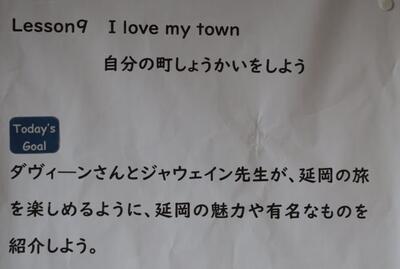 Lesson9 I love my town
自分の町しょうかいをしよう
Today's
Goal
ダヴィーンさんとジャウェイン先生が、延岡の旅
を楽しめるように、延岡の魅力や有名なものを
紹介しよう。